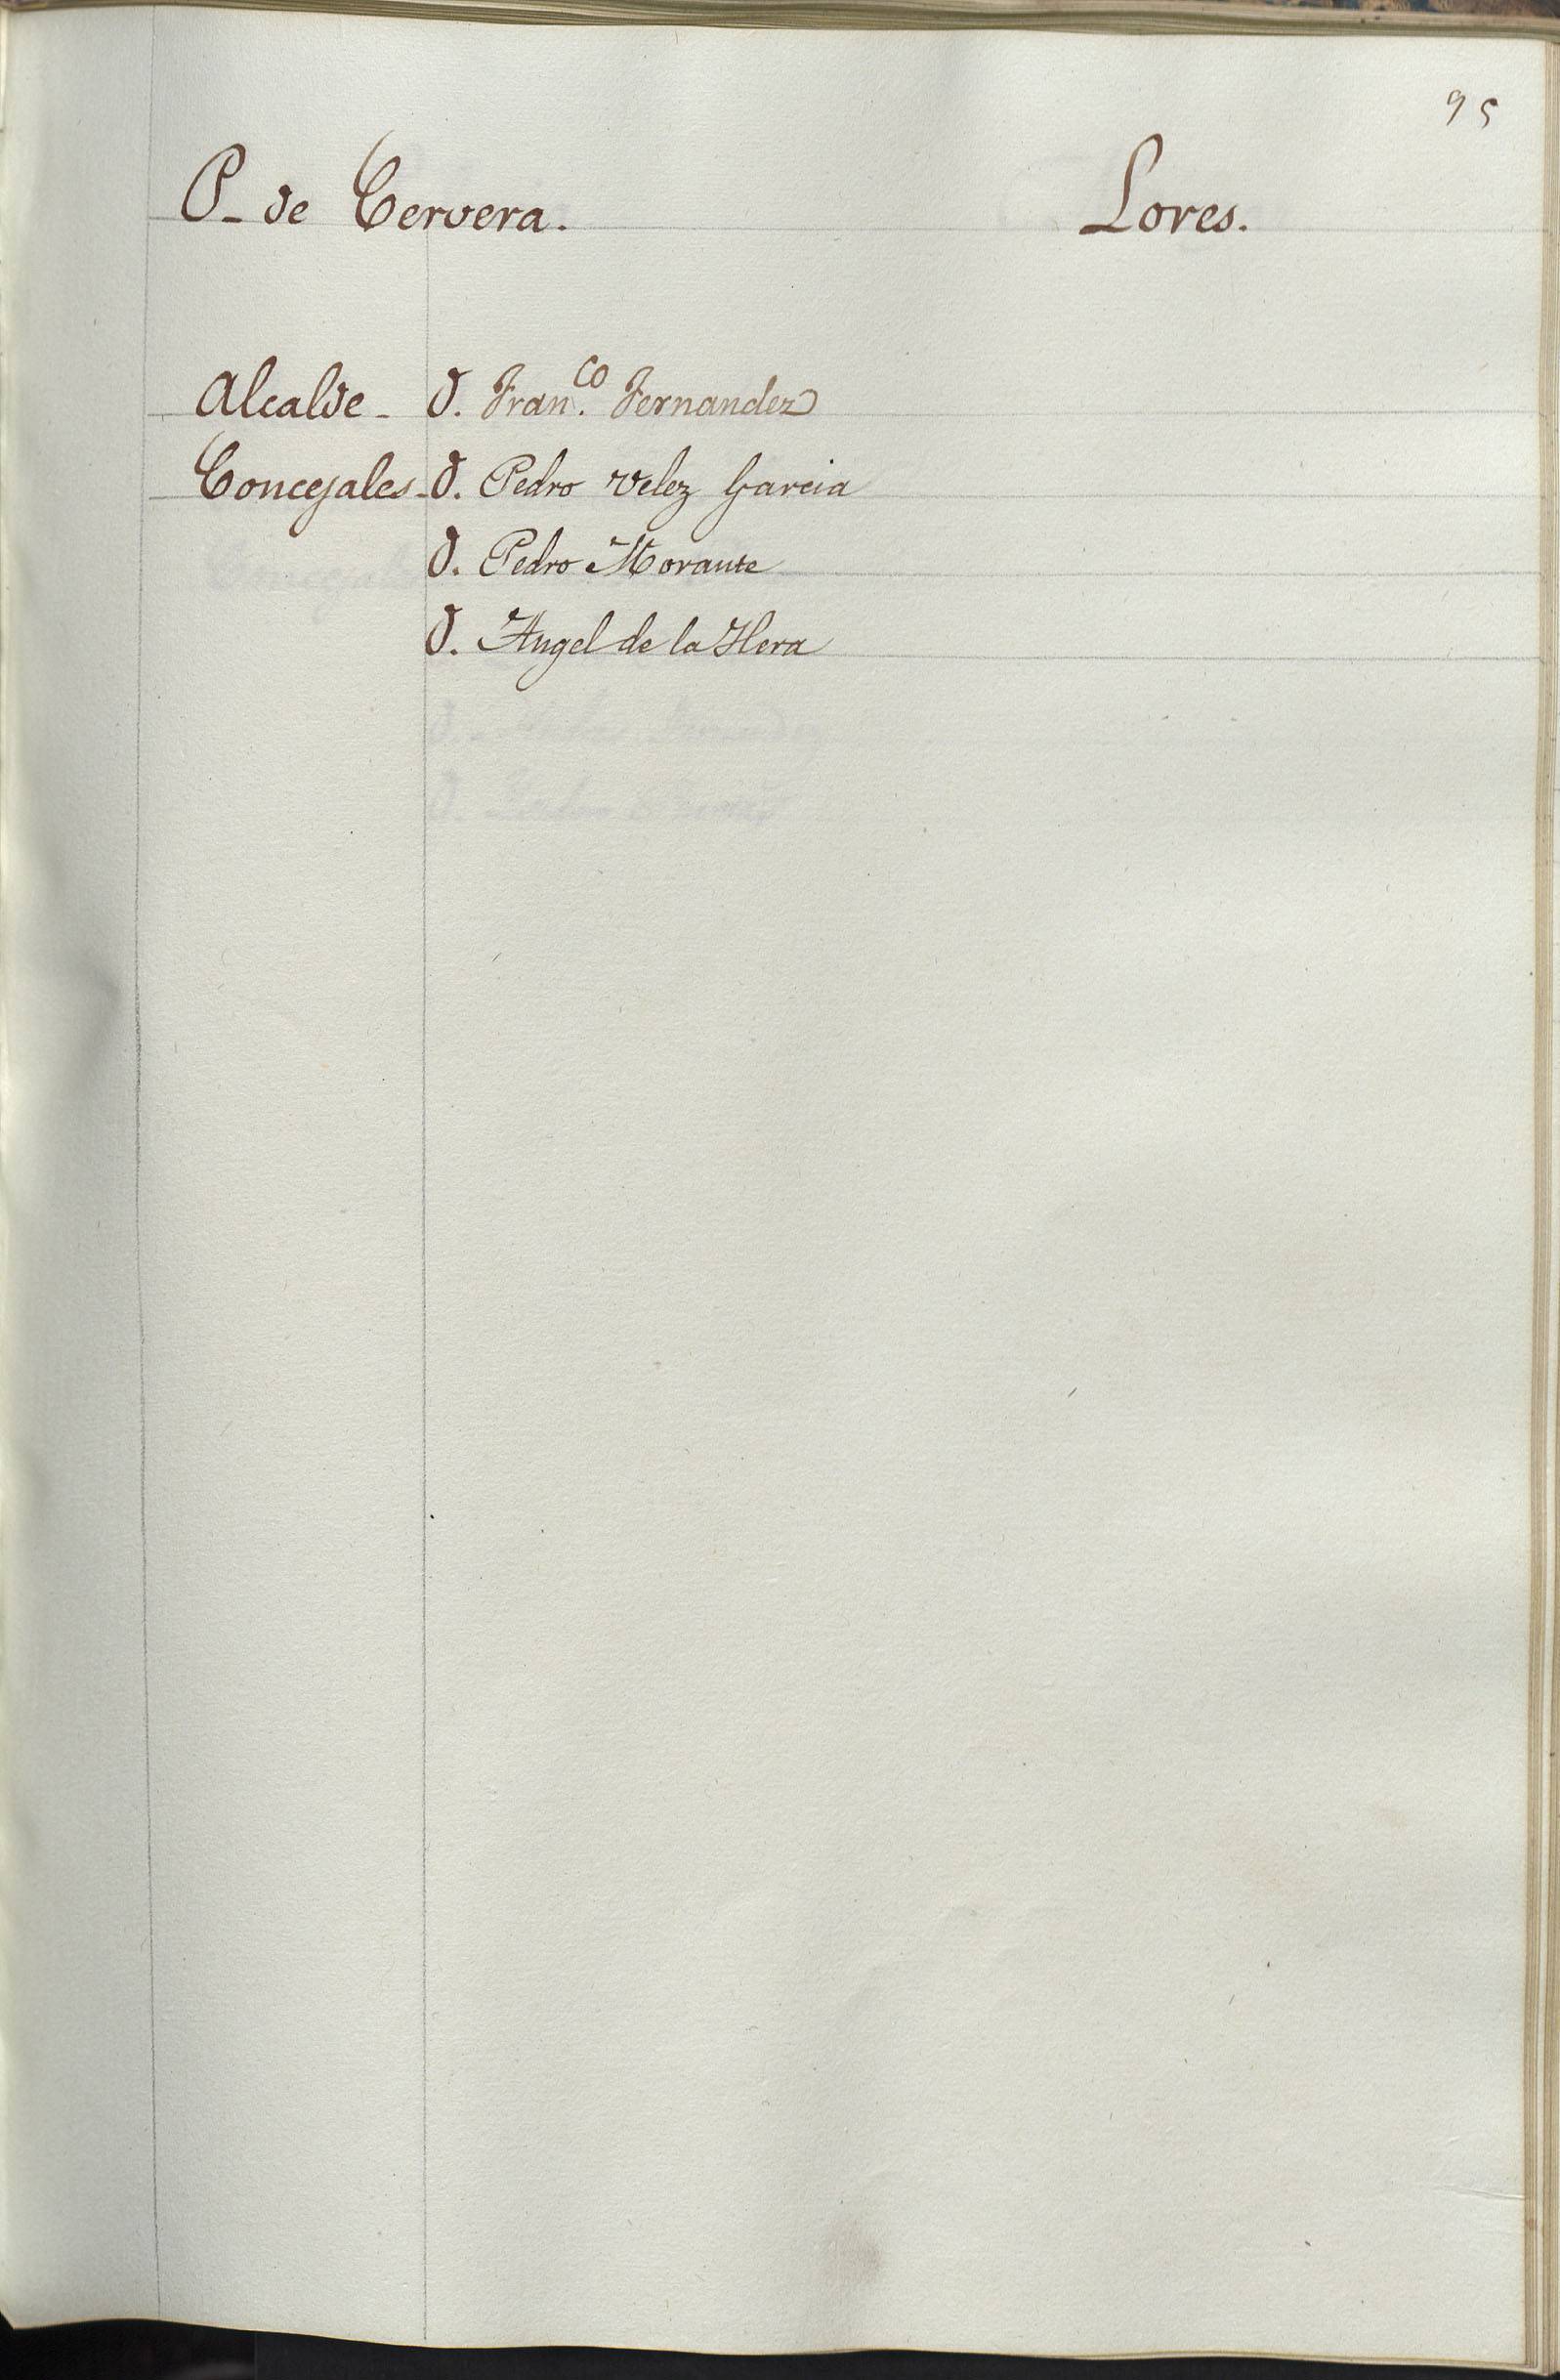 95
P_ de Cervera. Lores.
Alcalde_ D. Fran.co Fernandez
Concejales_ D. Pedro Velez Garcia
D. Pedro Morante
D. Angel de la Hera